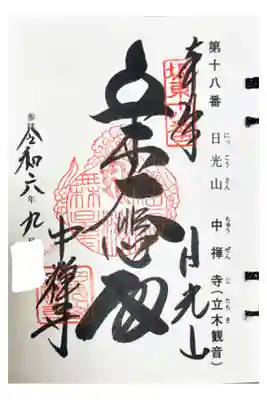 第十八番 日光山 中禅寺(立木観音)
にっこうさん ちゅうぜんじ たちき
奉拝
日光山
立木大悲殿
中禅寺
令和六年九